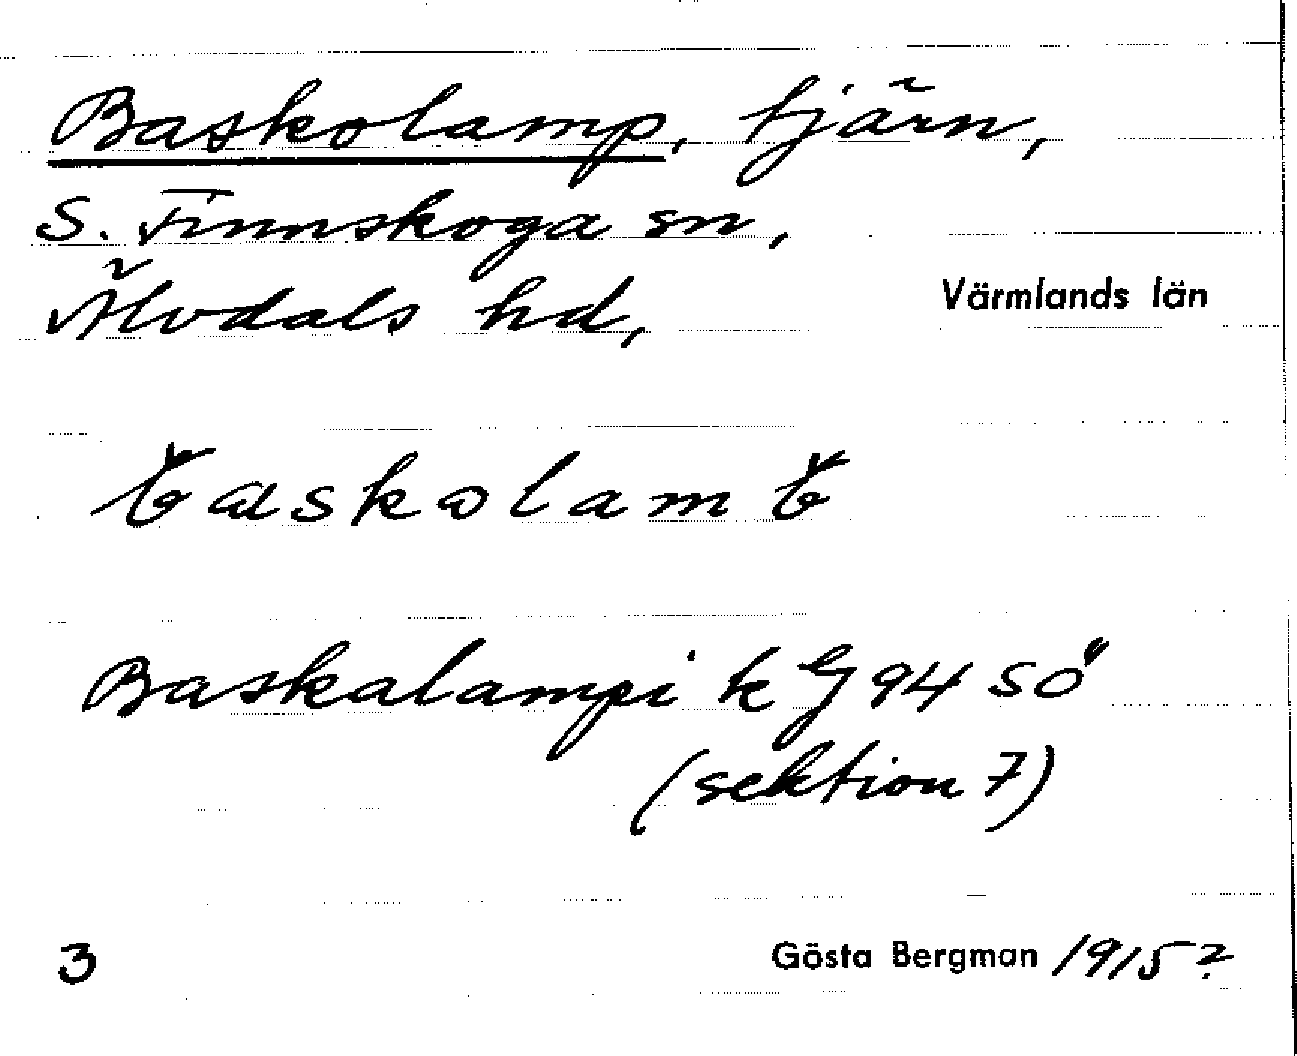 Baskolamp, tjärn,
S. Finnskoga sn,
Älvdals hd,
Värmlands län
Baskalampi k G 94 SÖ
(sektion 7)
3
Gösta Bergman 1915?